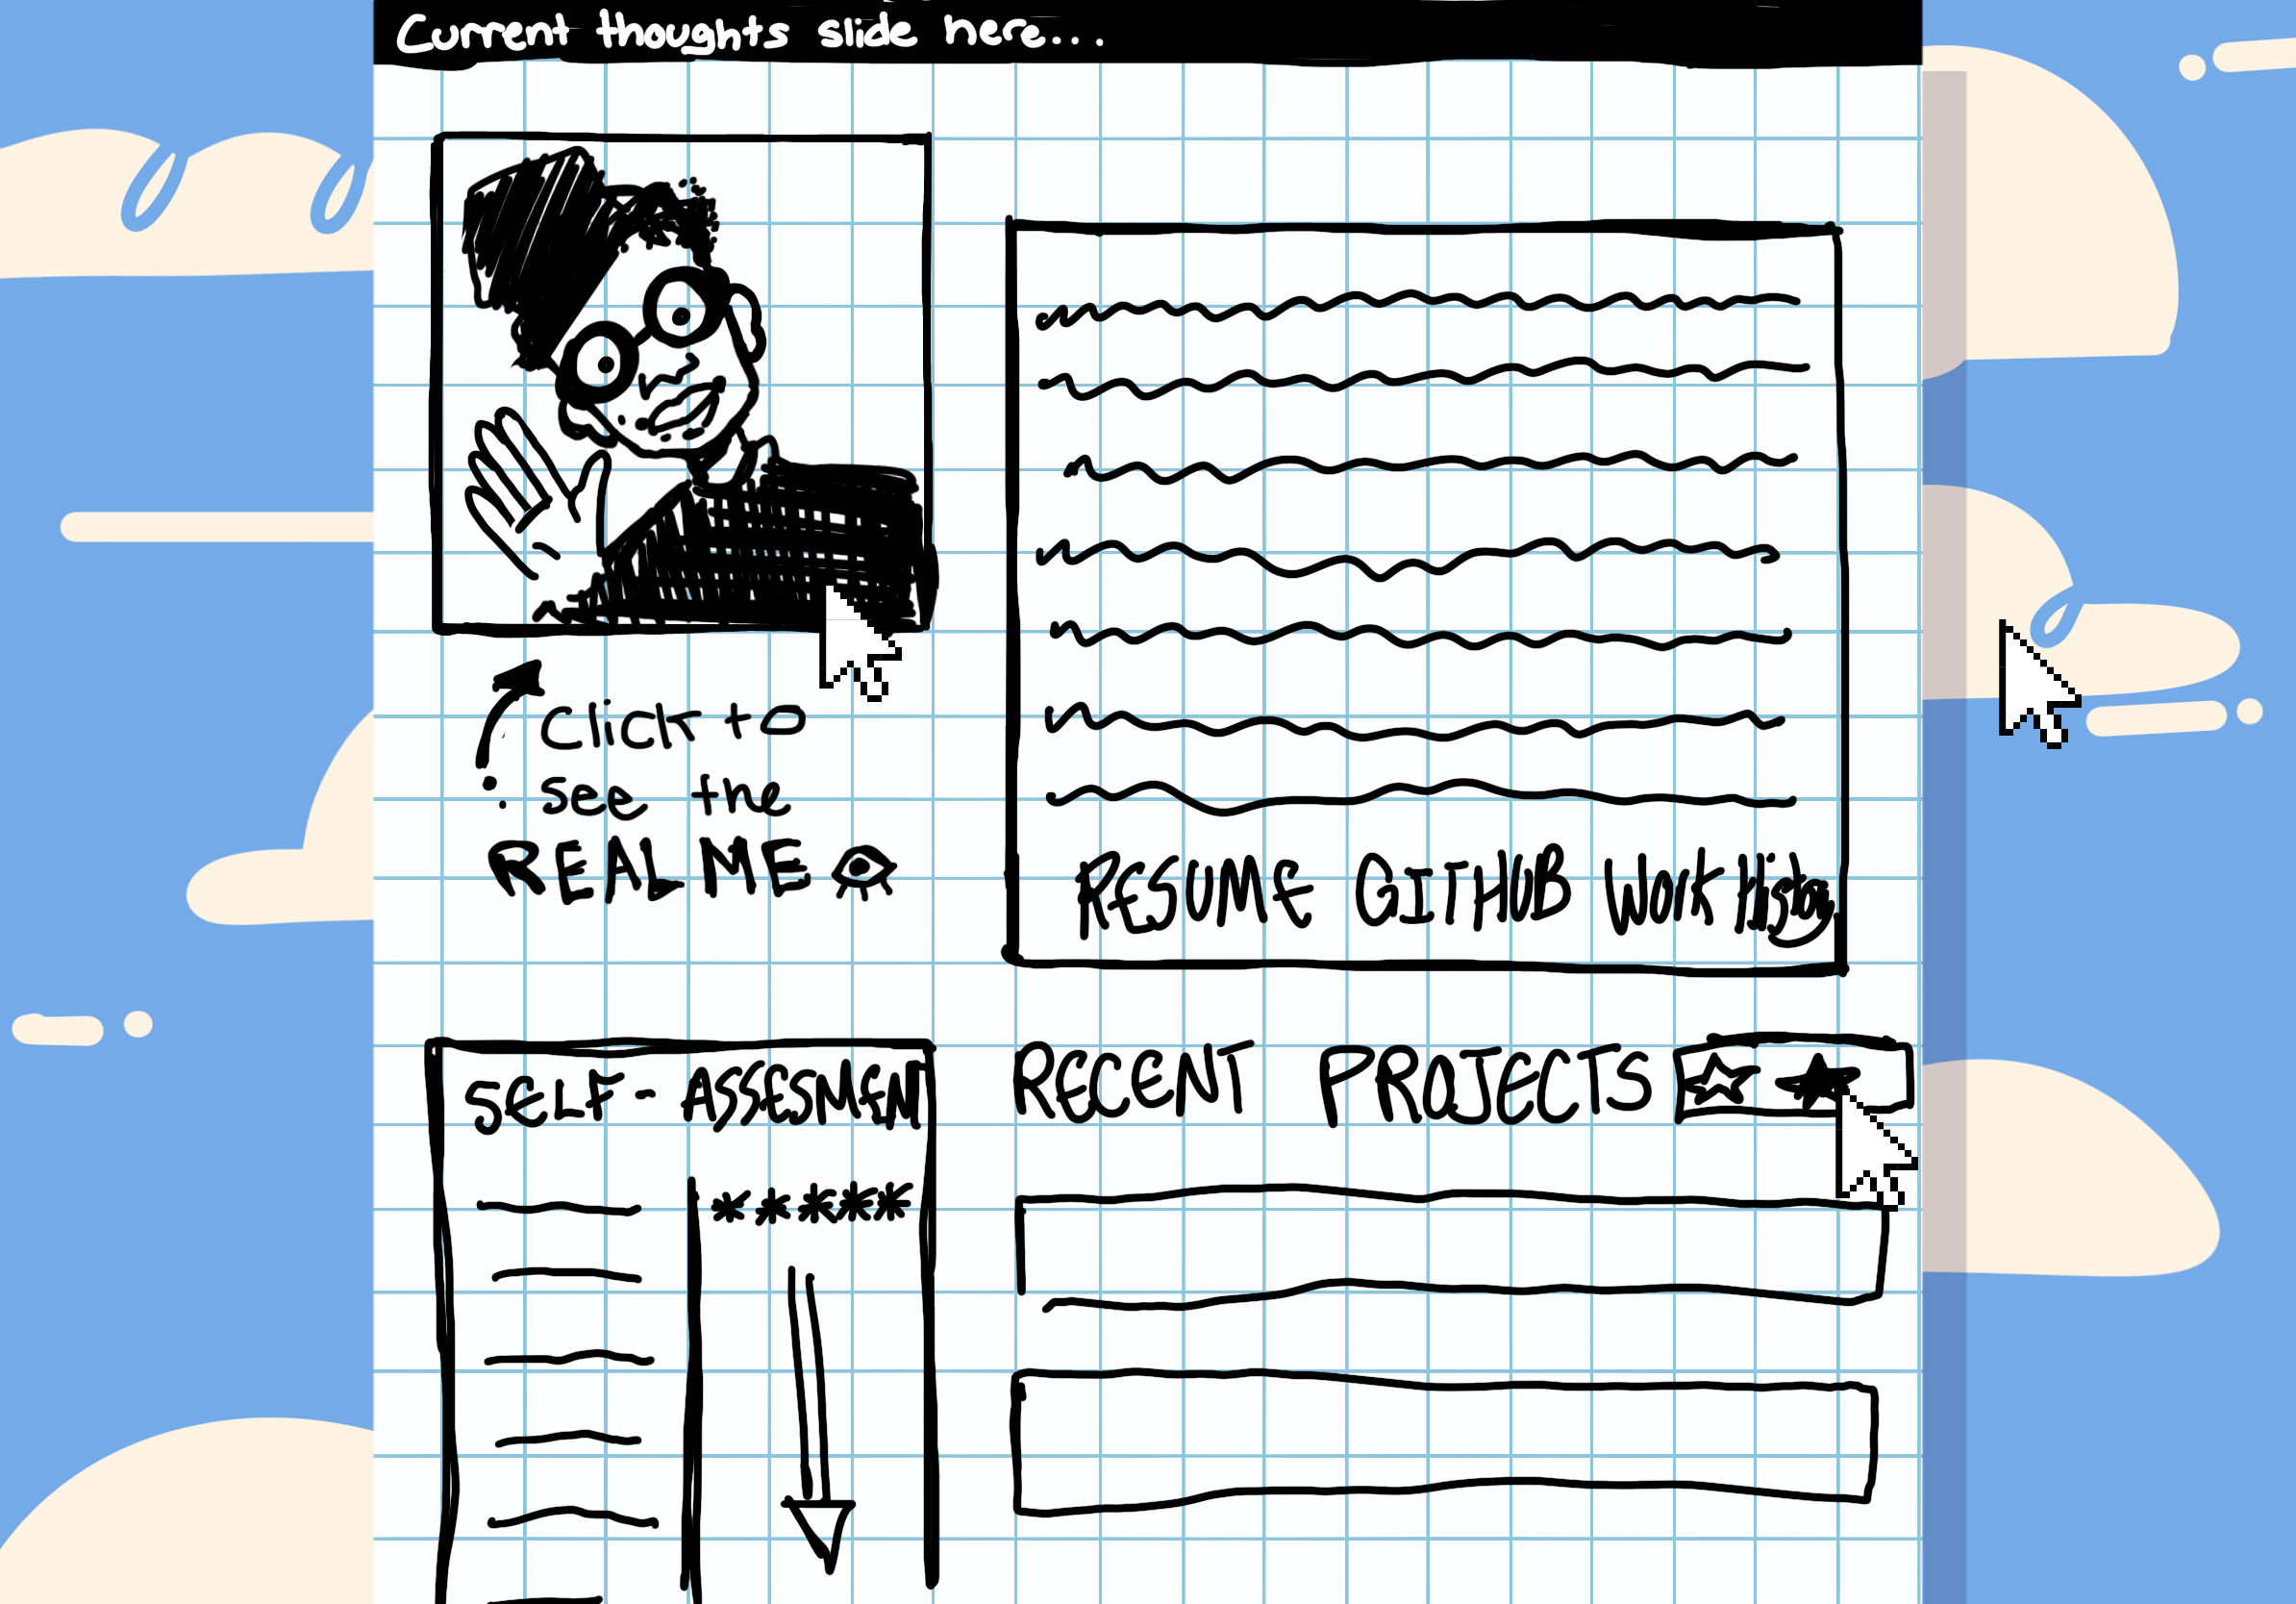 Current thoughts slide here...
Click to
see the
REAL ME
RESUME GITHUB WORK History
SELF-ASSESMEN
RECENT PROJECTS
*****